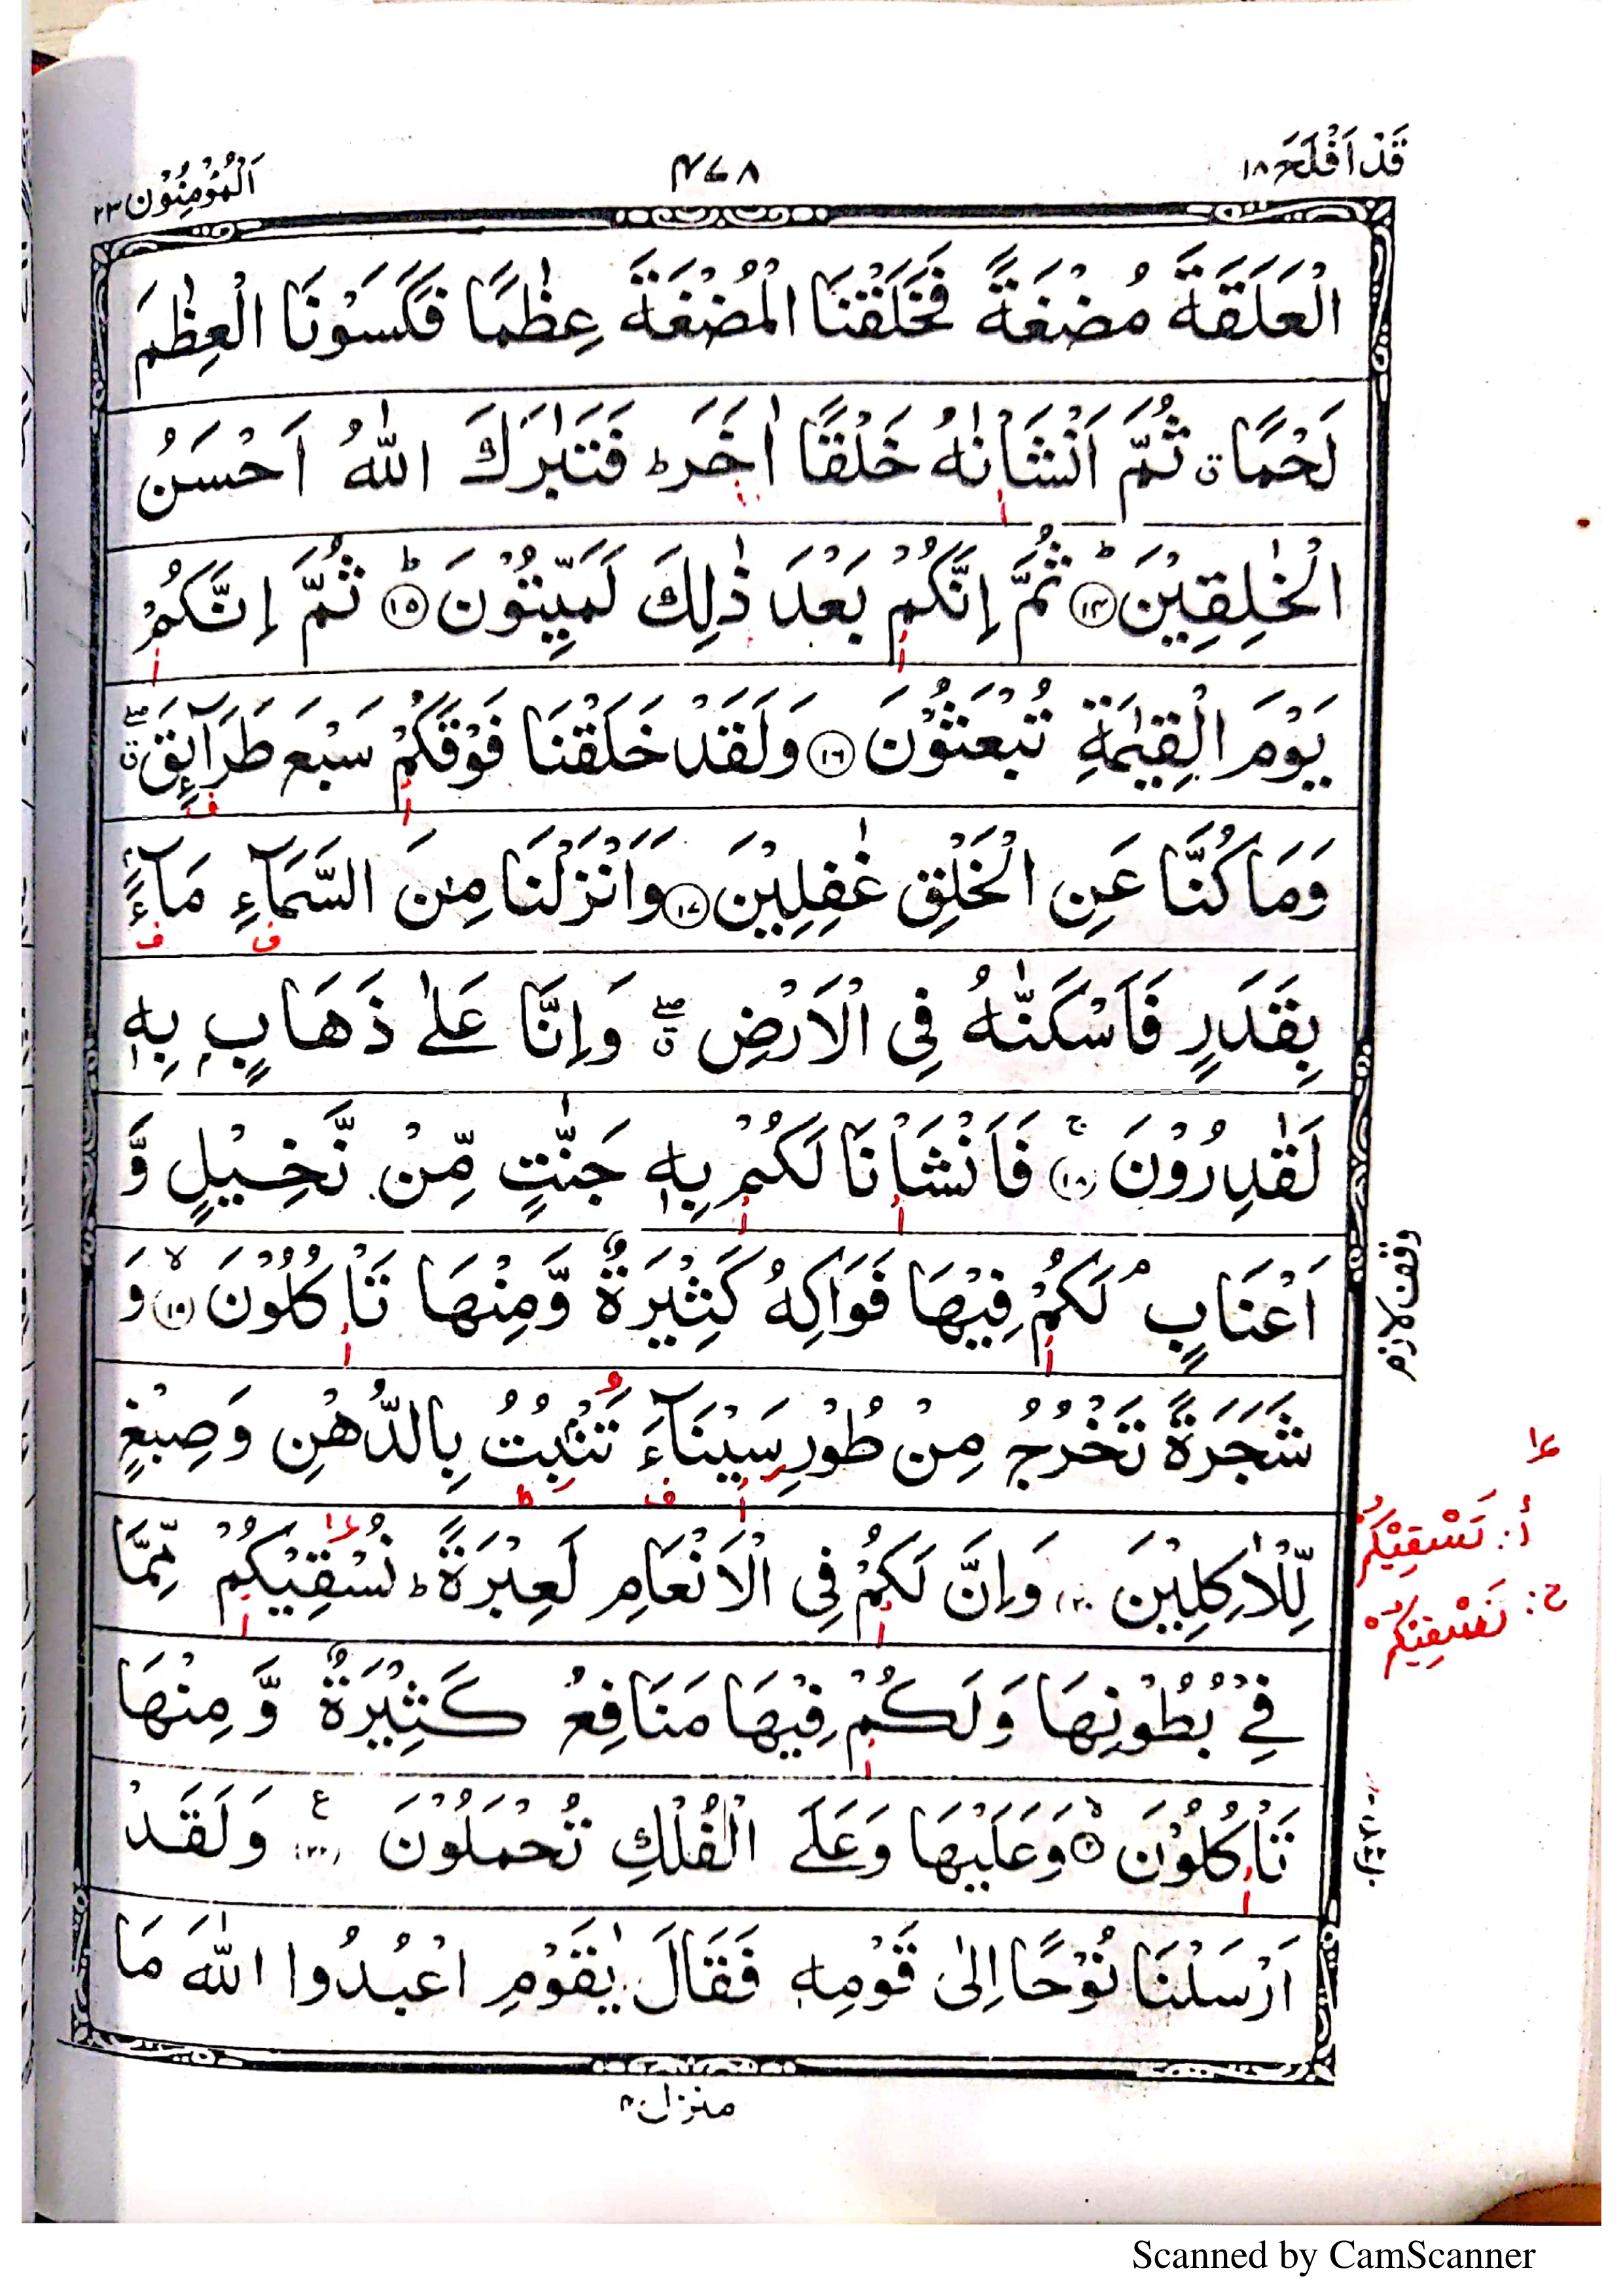 قَدْ اَفْلَحَ ١٨
٤٧٨
اَلْمُؤْمِنُوْن ٢٣
الْعَلَقَةَ مُضْغَةً فَخَلَقْنَا الْمُضْغَةَ عِظٰمًا فَكَسَوْنَا الْعِظٰمَ
لَحْمًا ق ثُمَّ اَنْشَاْنٰهُ خَلْقًا اٰخَرَ ط فَتَبٰرَكَ اللّٰهُ اَحْسَنُ
الْخٰلِقِيْنَ ط ١٤ ثُمَّ اِنَّكُمْ بَعْدَ ذٰلِكَ لَمَيِّتُوْنَ ط ١٥ ثُمَّ اِنَّكُمْ
يَوْمَ الْقِيٰمَةِ تُبْعَثُوْنَ ١٦ وَلَقَدْ خَلَقْنَا فَوْقَكُمْ سَبْعَ طَرَآئِقَ ۖق
وَمَا كُنَّا عَنِ الْخَلْقِ غٰفِلِيْنَ ١٧ وَاَنْزَلْنَا مِنَ السَّمَآءِ مَآءًۢ
بِقَدَرٍ فَاَسْكَنّٰهُ فِى الْاَرْضِ ۖق وَاِنَّا عَلٰى ذَهَابٍۭ بِهٖ
لَقٰدِرُوْنَ ج ١٨ فَاَنْشَاْنَا لَكُمْ بِهٖ جَنّٰتٍ مِّنْ نَّخِيْلٍ وَّ
اَعْنَابٍ م لَكُمْ فِيْهَا فَوَاكِهُ كَثِيْرَةٌ وَّمِنْهَا تَاْكُلُوْنَ لا ١٩ وَ
شَجَرَةً تَخْرُجُ مِنْ طُوْرِ سَيْنَآءَ تَنْۢبُتُ بِالدُّهْنِ وَصِبْغٍ
لِّلْاٰكِلِيْنَ ٢٠ وَاِنَّ لَكُمْ فِى الْاَنْعَامِ لَعِبْرَةً ط نُسْقِيْكُمْ مِّمَّا
فِىْ بُطُوْنِهَا وَلَكُمْ فِيْهَا مَنَافِعُ كَثِيْرَةٌ وَّمِنْهَا
تَاْكُلُوْنَ لا ٢١ وَعَلَيْهَا وَعَلَى الْفُلْكِ تُحْمَلُوْنَ ع ٢٢ وَلَقَدْ
اَرْسَلْنَا نُوْحًا اِلٰى قَوْمِهٖ فَقَالَ يٰقَوْمِ اعْبُدُوا اللّٰهَ مَا
وقف لازم
أ: نَسْقِيْكُمُ
ح: تَسْقِيْكُمْ
منزل ٤
Scanned by CamScanner